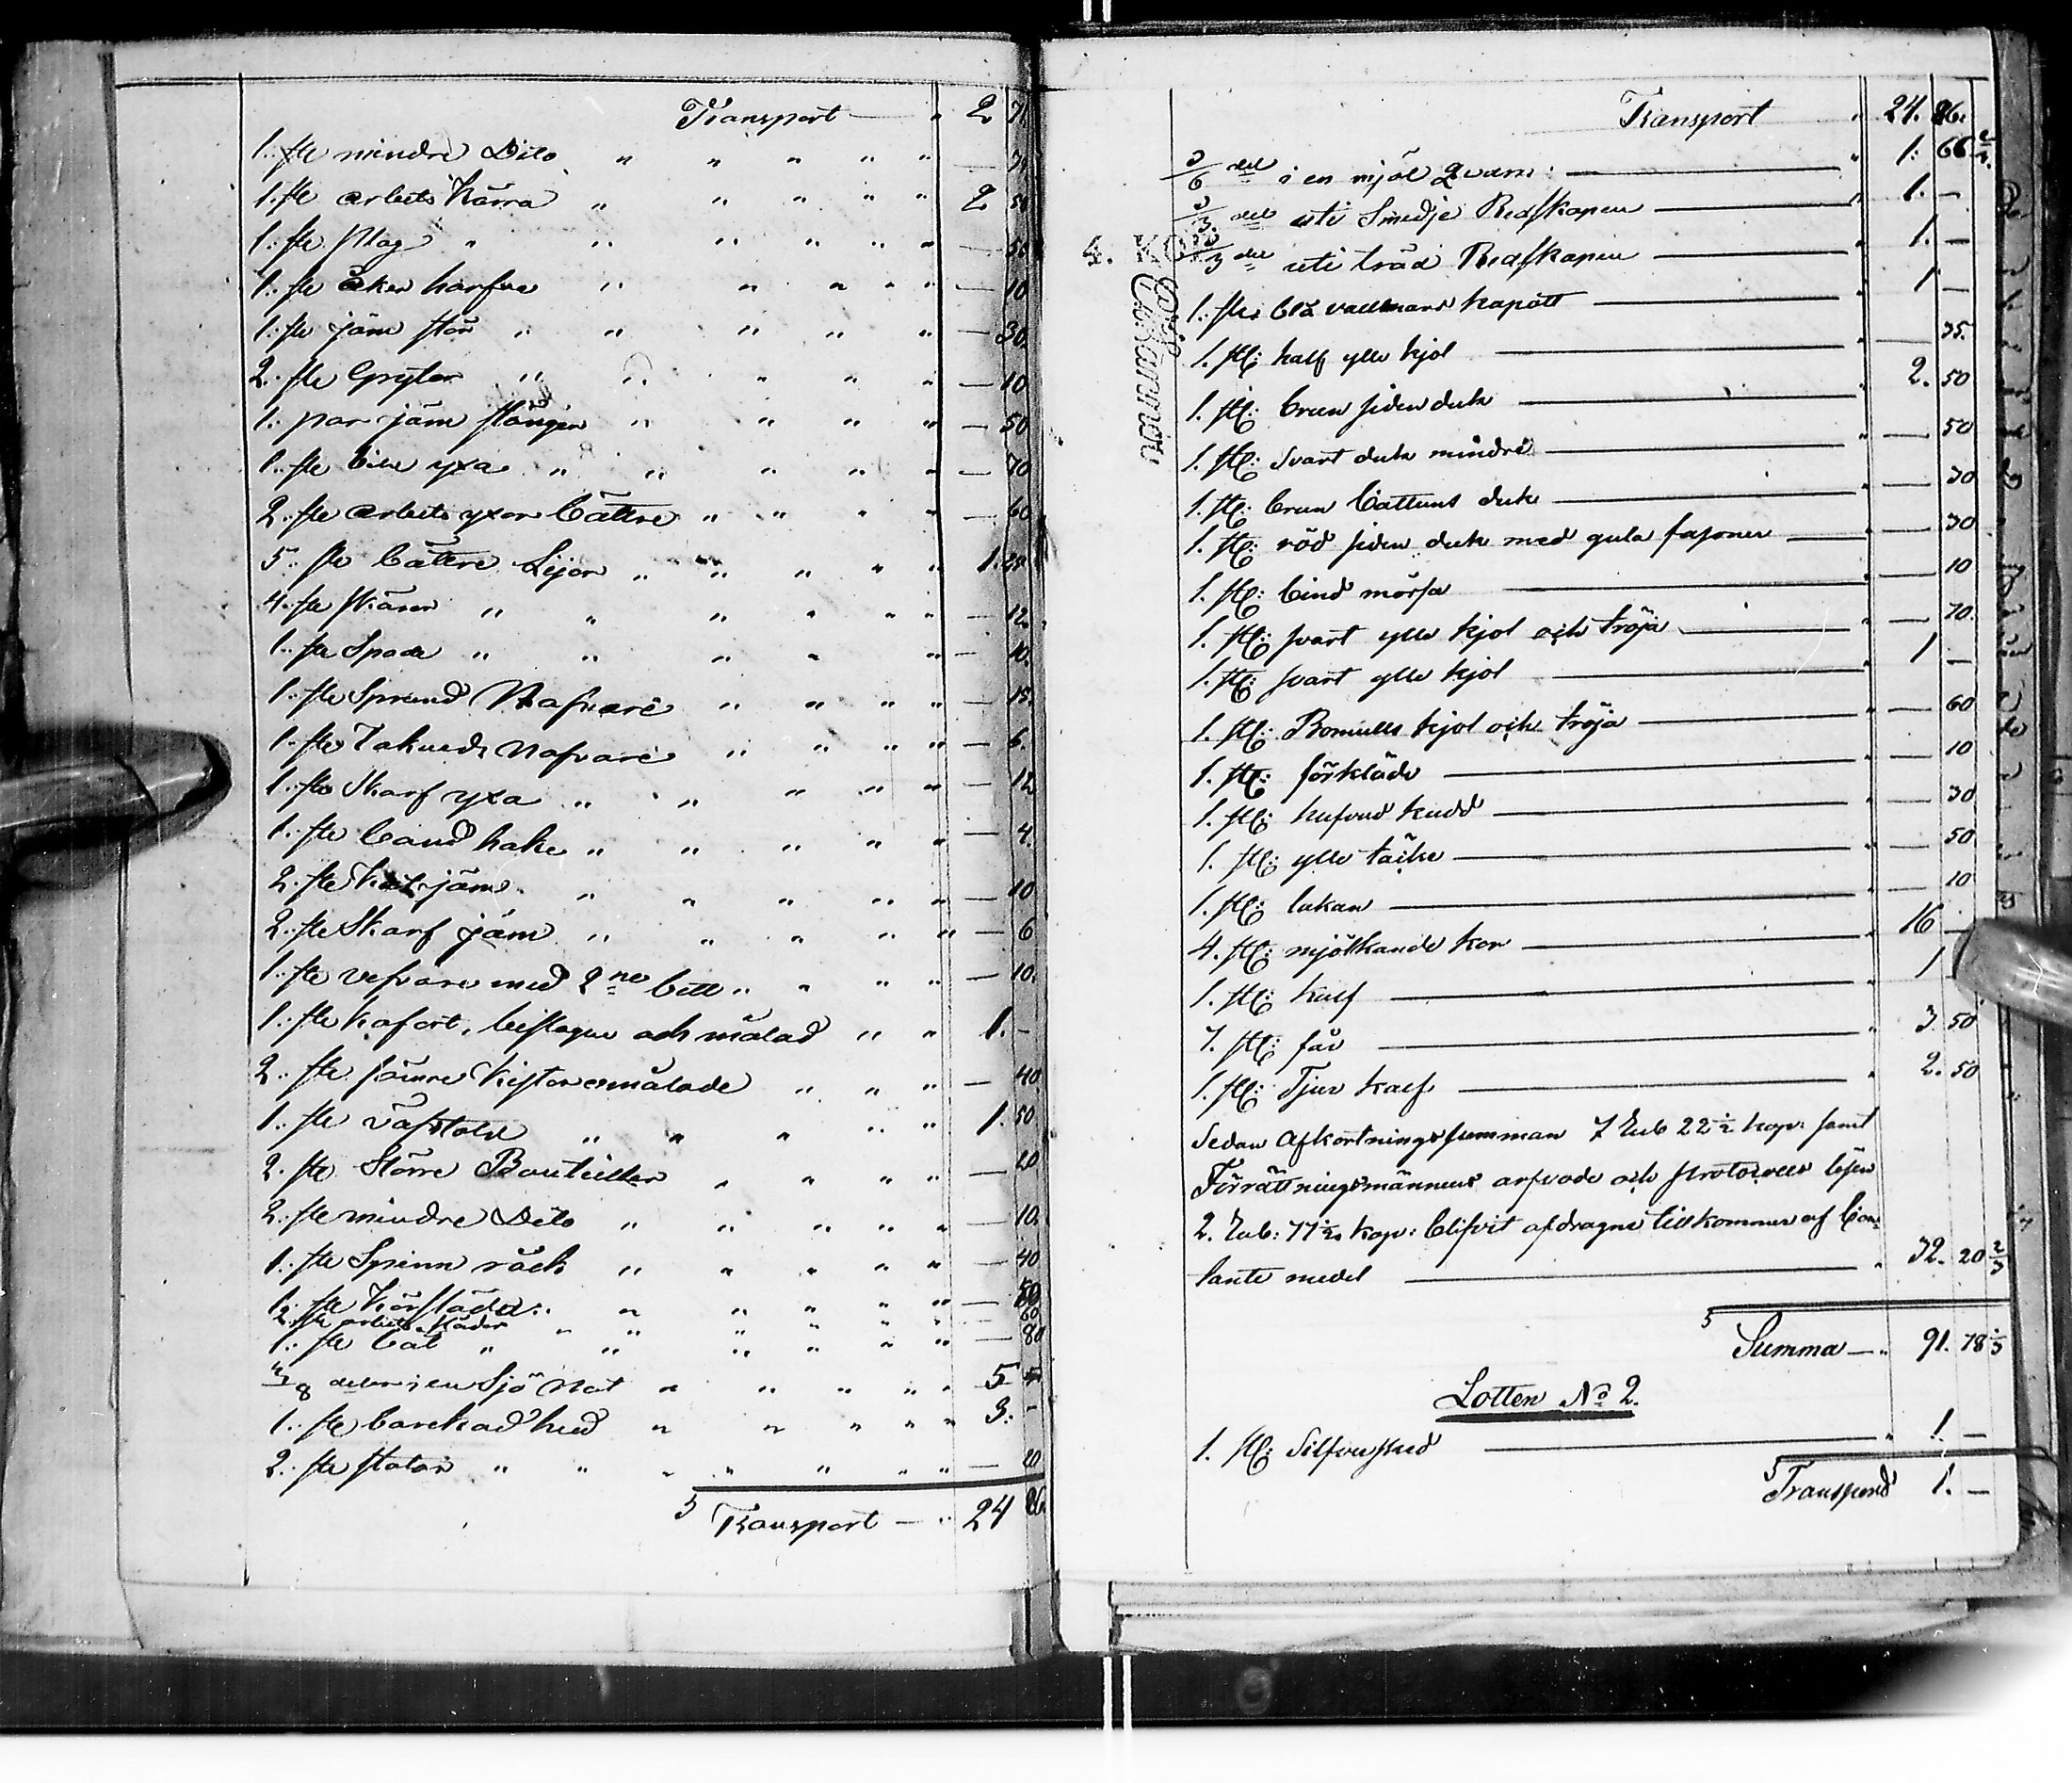 Transport — " 2 71
1. ste mindre Dito " " " " " — 75
1. ste arbets kärra " " " " " 2 50
1. ste Plog " " " " " " — 50
1. ste åker harfve " " " " " — 10
1. ste järn stör " " " " " — 30
2. ste Grytor " " " " " — 10
1. par järn stänger " " " " — 50
1. ste bila yxa " " " " — 70
2. ste arbets yxor bättre " " " " — 60
5. ste bättre Lijor " " " " " 1. 25
4. ste skäror " " " " " " — 12
1. ste Spade " " " " " — 10.
1. ste Sprund Nafvare " " " " — 15
1. ste Takveds Nafvare " " " " — 6.
1. ste Skarf yxa " " " " " — 12
1. ste band hake " " " " " — 4.
2. ste järn " " " " " — 10
2. ste Skarf järn " " " " " — 6
1. ste vefvare med 2ne bett " " " " — 10.
1. ste kafort, beslagen och målad " " 1. -
2. ste sämre kistor omålade " " " — 40
1. ste väfstold " " " " " 1. 50
2. ste Större Bouteiller " " " " — 20
2. ste mindre Dito " " " " " — 10.
1. ste Spinn råck " " " " " — 40
1. ste Körsläda " " " " " — 50
2. ste arbets släder " " " " " 60
1. ste båt " " " " " " — 80
3/8 delar i en Sjö Not " " " " " 5
1. ste barckad hud " " " " " 3. -
2. ste stolar " " " " " " " — 20
5 Transport — " 24 86
Transport " 24. 86.
5/6 del i en mjöl Qvarn: — " 1: 66 2/3.
2/3 del uti Smedje Redskapen — " 1. —
2/3 del uti träd Redskapen — " 1. —
4. KO
1. ste blå vallmans kapått — " 1 —
1. st: half ylle kjol — 35.
1. st: brun siden duk — " 2. 50
1. st: Svart duk mindre — " — 50
1. st: brun Cattuns duk — " — 30
1. st: röd siden duk med gula fasoner — " — 30
1. st: bind mössa — " — 10
1. st: svart ylle kjol och tröja — " — 70.
1. st: svart ylle kjol — " 1 —
1. st: Bomulls kjol och tröja — " — 60
1. st: förkläde — " — 10
1. st: hufvud kudd — " — 30
1. st: ylle täcke — " — 50
1. st: lakan — " — 10
4. st: mjölkande kor — " 16 —
1. st: kalf — " 1
7. st: får — " 3. 50
1. st: Tjur kalf — " 2. 50
Sedan afkortningssumman 7 Rub 22 1/2 kop: samt
Förrättningsmännens arfvode och protocolls lösen
2. Rub: 77 1/2 kop: blifvit afdragne tillkommer af Con=
tante medel — " 32. 20 2/3
5 Summa — " 91. 78 1/3
Lotten No 2.
1. st: Silfversked — " 1. —
5 Transport 1. —